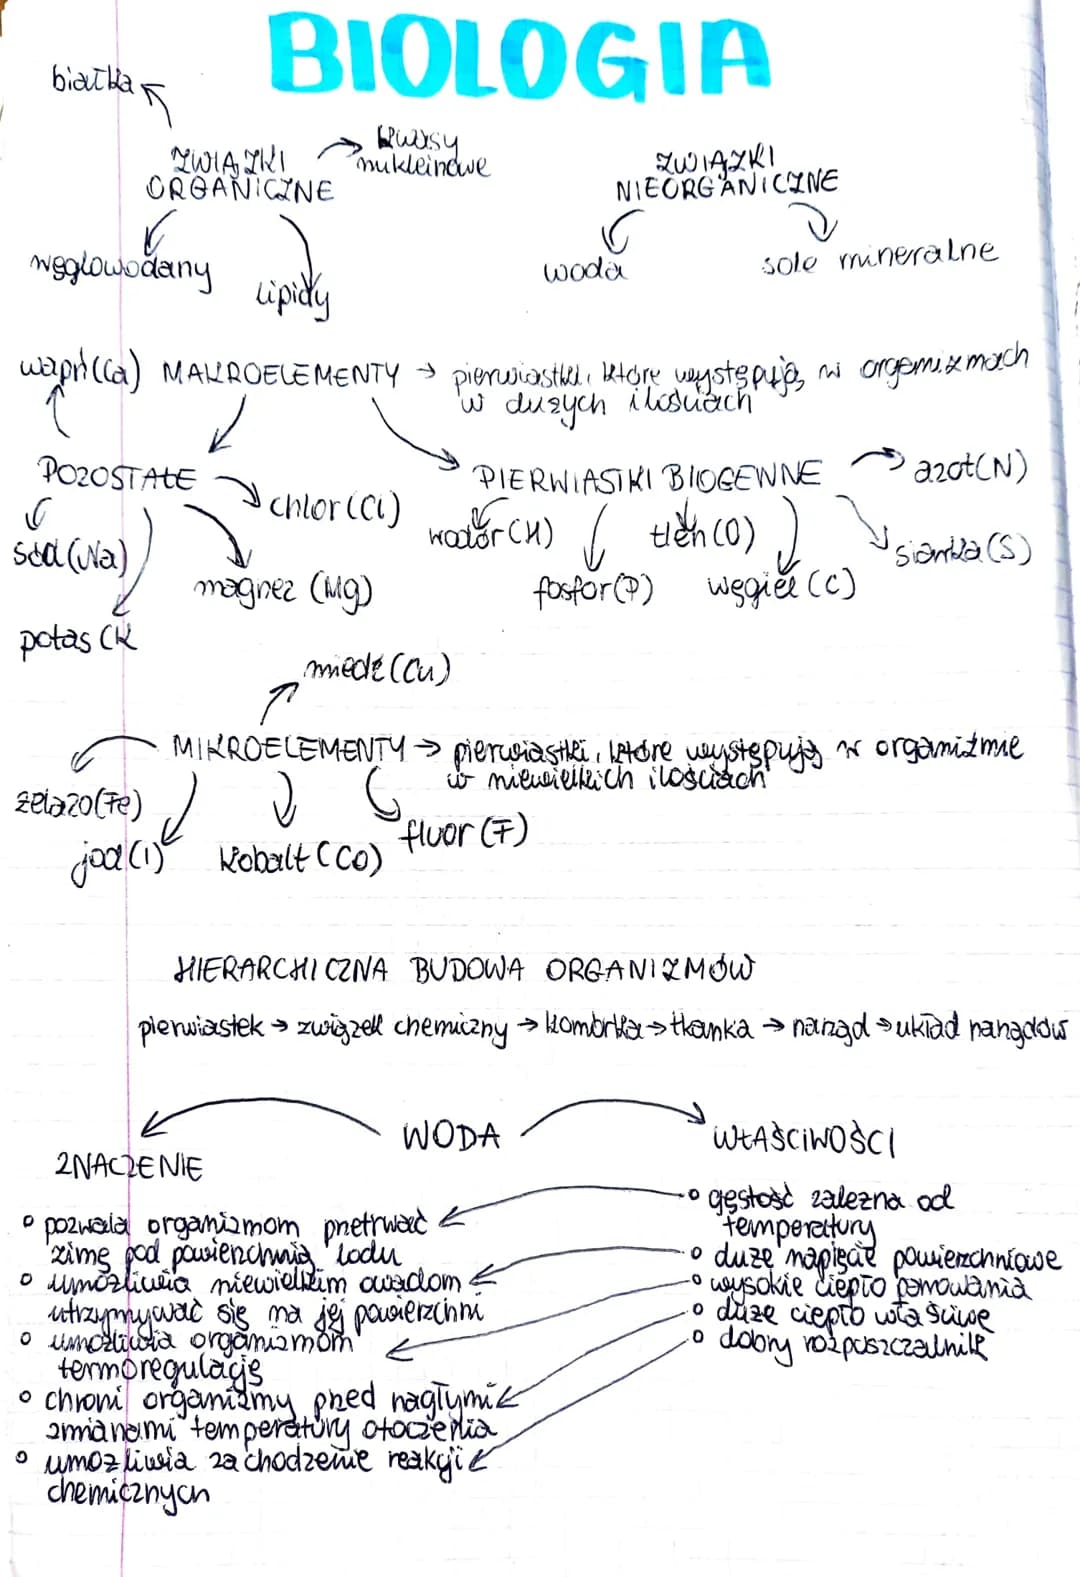 BIOLOGIA
białka
ZWIĄZKI
ORGANICZNE
kwasy
nukleinowe
węglowodany
lipidy
ZWIĄZKI
NIEORGANICZNE
woda
sole mineralne
wapń(Ca) MAKROELEMENTY → pierwiastki, które występują w organizmach
w dużych ilościach
POZOSTAŁE
chlor(Cl)
sód(Na)
magnez (Mg)
potas (K
PIERWIASTKI BIOGENNE
azot(N)
wodór(H)
tlen(O)
siarka(S)
fosfor(P)
węgiel (C)
miedź(Cu)
MIKROELEMENTY → pierwiastki, które występują w organizmie
w niewielkich ilościach
żelazo(Fe)
jod(I)
kobalt(CO)
fluor(F)
HIERARCHICZNA BUDOWA ORGANIZMÓW
pierwiastek → związek chemiczny → komórka → tkanka → narząd → układ narządów
WODA
ZNACZENIE
o pozwala organizmom przetrwać
zimę pod powierzchnią lodu
o umożliwia niewielkim owadom
utrzymywać się na jej powierzchni
o umożliwia organizmom
termoregulację
o chroni organizmy przed nagłymi
zmianami temperatury otoczenia
o umożliwia zachodzenie reakcji
chemicznych
WŁAŚCIWOŚCI
o gęstość zależna od
temperatury
o duże napięcie powierzchniowe
o wysokie ciepło parowania
o duże ciepło właściwe
o dobry rozpuszczalnik